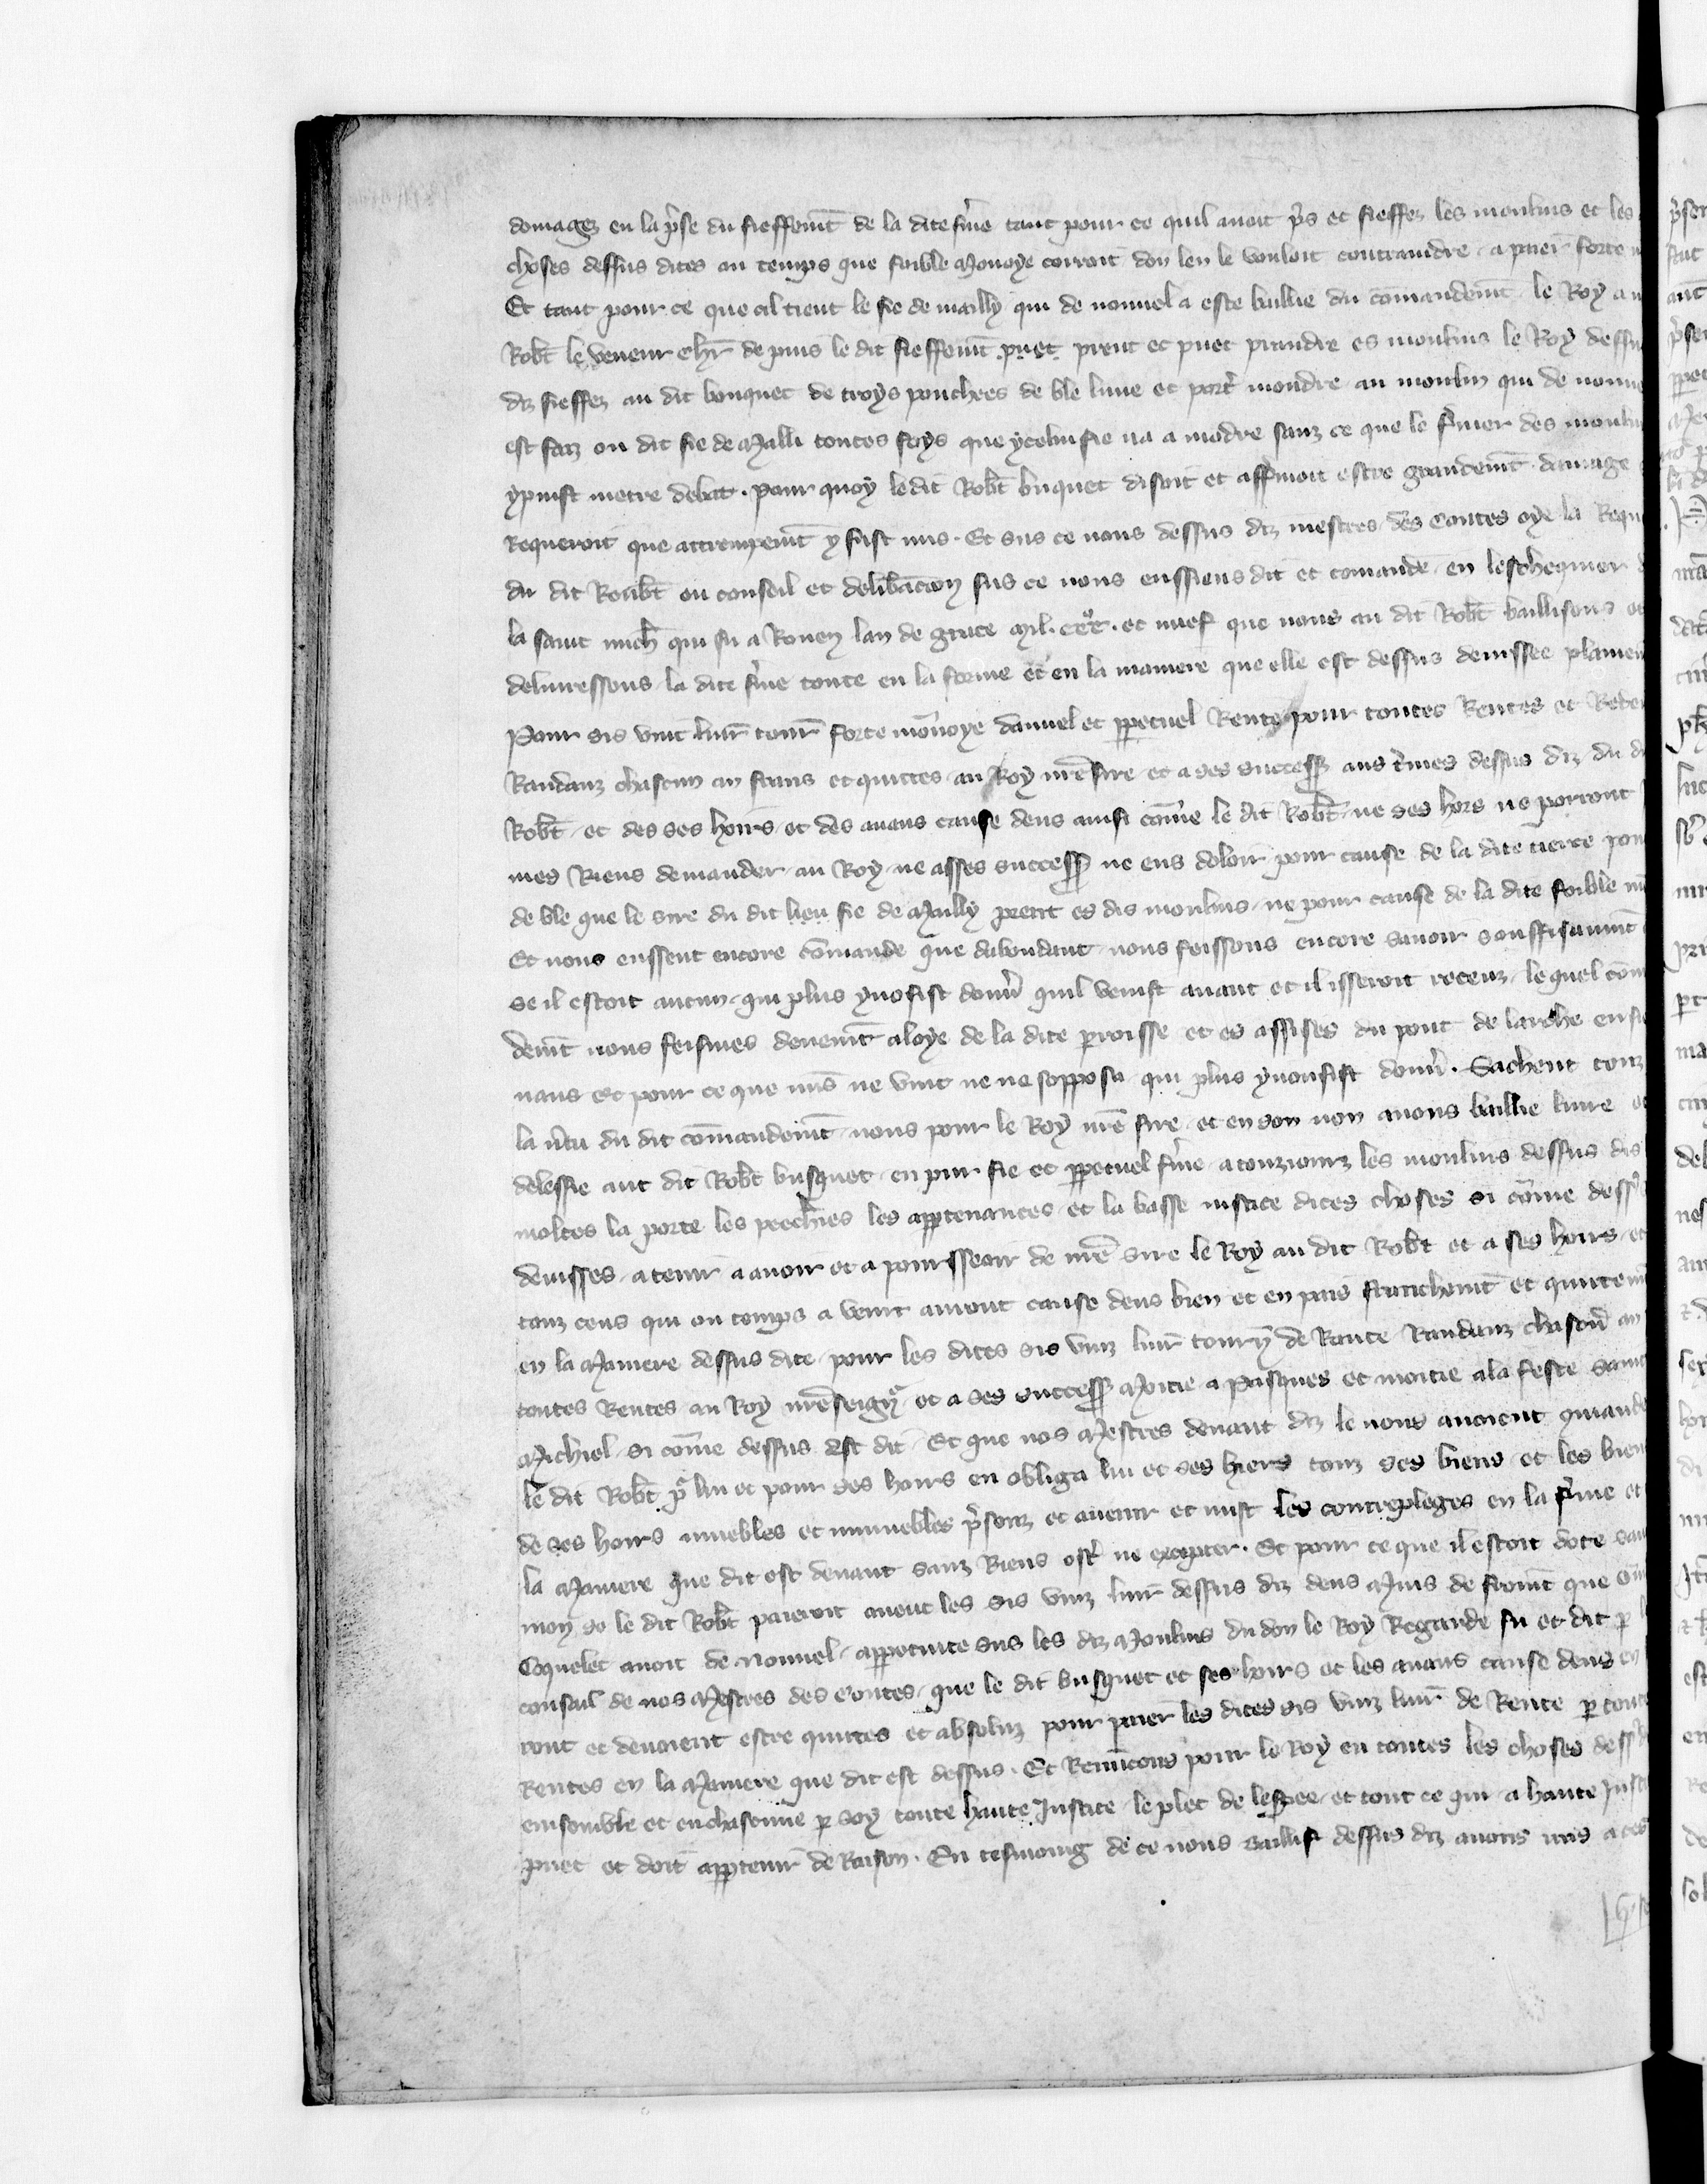 domages en la prise du fieffement de la dite ferme tant pour ce quil auoit pris et fieffez les moulins et les
choses dessus dites au temps que foible Monoye corroit don len le vouloit contraindre a paier forte
Et tant pour ce que cil tient le fie de mailly qui de nouuel a este baillie du comandement le Roy a
Robt le veneur chlr de puis le dit fieffement puet prent et puet prendre es moulins le Roy dessus
diz fieffez au dit bonquet de troys pouchees de ble lune et porter moudre au moulin qui de nouuel
est faiz ou dit fie de Malli toutes foys que ycelui fie na a modre sanz ce que le fermier des moulins
ypuist metre debat . Pour quoy ledit Robt buquet disoit et affermoit estre grandement damage
requeroit que attrempement y fust mis . Et sus ce nous dessus diz mestres des Contes oye la Reque
du dit Roubt ou conseil et deliberacion sus ce nous eussiens dit et comande en leschequier
la saint mich qui fu a Rouen lan de grace Mil . ccc . et nuef que nous au dit Robt baillisons et
deliuressons la dite ferme toute en la forme et en la maniere que elle est dessus deuissee plainem
Pour sis vint liur tour forte monnoye danuel et perpetuel Rente pour toutes Rentes et Rede
Randanz chascun an frans et quittes au Roy nre sire et a ses success aus termes dessus diz du di
Robt et des ses hoirs et des aians cause deus ainsi come le dit Robt ne ses hors ne porront
mes Riens demander au Roy ne asses success ne eus doloir pour cause de la dite tierce pou
de ble que le sire du dit lieu fie de Mailly prent es dis moulins ne pour cause de la dite foible m
Et nous eussent encore comande que dabondant nous feissons encore sauoir souffisaument
se il estoit aucun qui plus ynofist donner quil venist auant et il isseroit receuz lequel com
dement nous feismes deuement aloye de la dite parroisse et es assises du pont de larche
nans Et pour ce que nuls ne vint ne ne sopposa qui plus ynonsist donner . Sachent touz
la vertu du dit comandement nous pour le Roy nre sire et en son non auons baillie liure et
delessie aut dit Robt busquet en pur fie et perpetuel ferme atouziourz les moulins dessus dis
moltes la porte les pecheries les appartenances et la basse iustice dites choses si come dess
deuisses atenir a auoir et a pourssoair de nre sire le Roy au dit Robt et a ses hoirs et
touz ceus qui ou temps a venir auront cause deus bien et en pais franchement et quitem
en la Maniere dessus dite pour les dites sis vinz liur tourn de Rante Randanz chascun an
toutes Rentes au Roy nre seigneur et a ses success Moitie a Pasques et moitie ala feste saint
Michiel si come dessus est dit Et que nos Mestres deuant diz le nous auoient mande
le dit Robt pour lui et pour ses hoirs en obliga lui et ses hiers touz ses biens et les bien
de ses hoirs muebles et nonmuebles presenz et auenir et mist les contrepleges en la ferme et
la Maniere que dit est deuant sanz Riens oster ne excepter . Et pour ce que il estoit dote
mon se le dit Robt paieroit aueuc les sis vinz liur dessus diz deus Muis de froment que
Coquelet auoit de nouuel aperpetuite sus les diz Moulins du don le Roy Regarde fu et dit par
conseil de nos Mestres des contes que le dit busquet et ses hoirs et les aians cause deus en
ront et deuoient estre quittes et absoluz pour paier les dites sis vinz liur de Rente par tout
Rentes en la Maniere que dit est dessus . Et Retenons pour le Roy en toutes les choses dess
ensemble et en chascune par soy toute haute Justice le plet de lespee et tout ce qui a haute Just
puet et doit appartenir de Raison . En tesmoing de ce nous Baillif dessus diz auons mis a ces